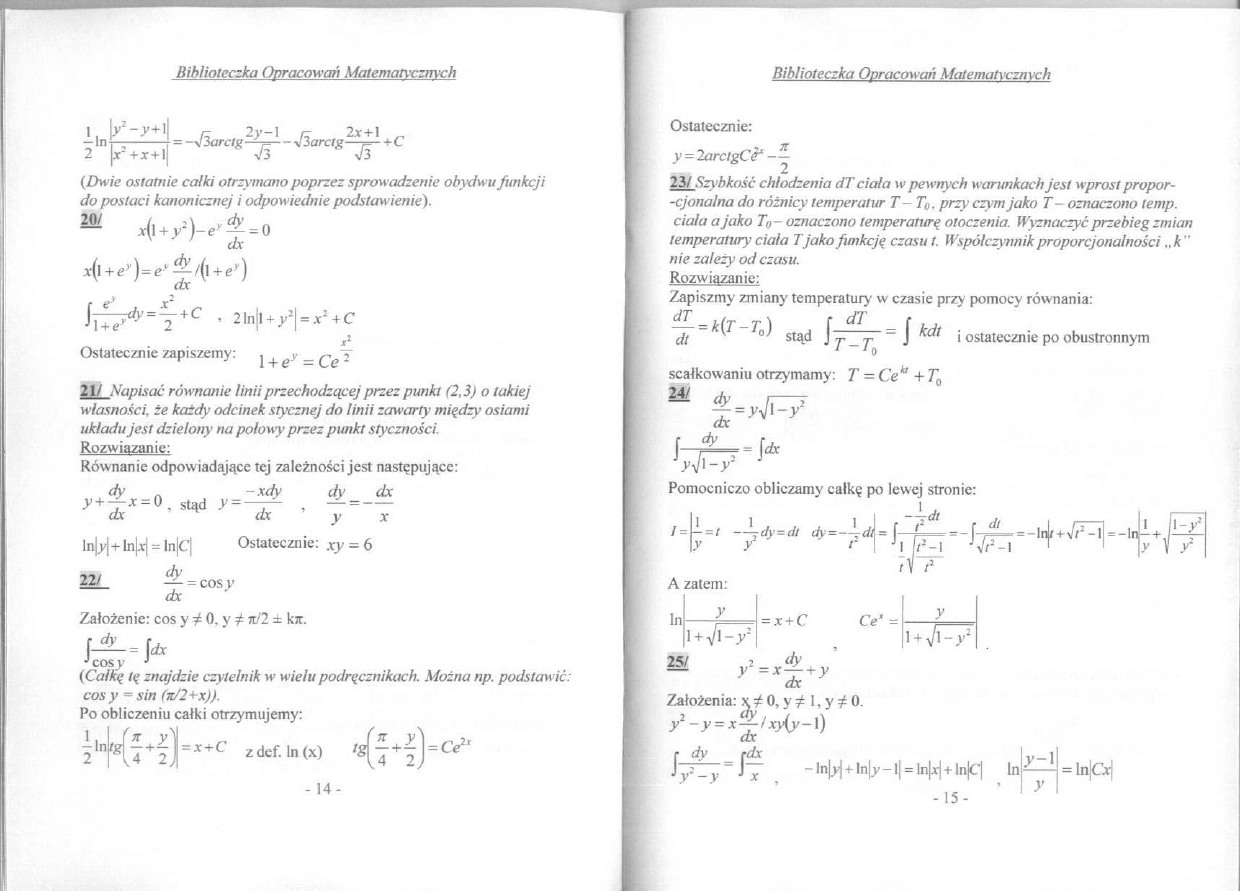 Biblioteczka Opracowań Matematycznych
1/2 ln |y² - y + 1| / |x² + x + 1| = -√3 arctg (2y-1)/√3 - √3 arctg (2x+1)/√3 + C
(Dwie ostatnie całki otrzymano poprzez sprowadzenie obydwu funkcji
do postaci kanonicznej i odpowiednie podstawienie).
20/ x(1 + y²) - e^y dy/dx = 0
x(1 + e^y) = e^y dy/dx /(1 + e^y)
∫ e^y/(1+e^y) dy = x²/2 + C , 2 ln|1 + y²| = x² + C
Ostatecznie zapiszemy: 1 + e^y = Ce^(x²/2)
21/ Napisać równanie linii przechodzącej przez punkt (2,3) o takiej
własności, że każdy odcinek stycznej do linii zawarty między osiami
układu jest dzielony na połowy przez punkt styczności.
Rozwiązanie:
Równanie odpowiadające tej zależności jest następujące:
y + dy/dx x = 0 , stąd y = -xdy/dx , dy/y = - dx/x
ln|y| + ln|x| = ln|C| Ostatecznie: xy = 6
22/ dy/dx = cos y
Założenie: cos y ≠ 0, y ≠ π/2 ± kπ.
∫ dy/cos y = ∫dx
(Całkę tę znajdzie czytelnik w wielu podręcznikach. Można np. podstawić:
cos y = sin (π/2+x)).
Po obliczeniu całki otrzymujemy:
1/2 ln|tg(π/4 + y/2)| = x + C z def. ln (x) tg(π/4 + y/2) = Ce^(2x)
- 14 -
Biblioteczka Opracowań Matematycznych
Ostatecznie:
y = 2arctgCe^(2x) - π/2
23/ Szybkość chłodzenia dT ciała w pewnych warunkach jest wprost propor-
-cjonalna do różnicy temperatur T – T₀, przy czym jako T – oznaczono temp.
ciała a jako T₀ – oznaczono temperaturę otoczenia. Wyznaczyć przebieg zmian
temperatury ciała T jako funkcję czasu t. Współczynnik proporcjonalności „k"
nie zależy od czasu.
Rozwiązanie:
Zapiszmy zmiany temperatury w czasie przy pomocy równania:
dT/dt = k(T - T₀) stąd ∫ dT/(T - T₀) = ∫ kdt i ostatecznie po obustronnym
scałkowaniu otrzymamy: T = Ce^(kt) + T₀
24/ dy/dx = y√(1 - y²)
∫ dy/(y√(1 - y²)) = ∫dx
Pomocniczo obliczamy całkę po lewej stronie:
I = |1/y = t -1/y² dy = dt dy = -1/t² dt| = ∫ (-1/t² dt)/(1/t √((t²-1)/t²)) = -∫ dt/√(t²-1) = -ln|t + √(t²-1)| = -ln|1/y + √((1-y²)/y²)|
A zatem:
ln |y/(1 + √(1 - y²))| = x + C , Ce^x = |y/(1 + √(1 - y²))| .
25/ y² = x dy/dx + y
Założenia: x ≠ 0, y ≠ 1, y ≠ 0.
y² - y = x dy/dx / xy(y - 1)
∫ dy/(y² - y) = ∫ dx/x , - ln|y| + ln|y - 1| = ln|x| + ln|C| , ln |(y-1)/y| = ln|Cx|
- 15 -